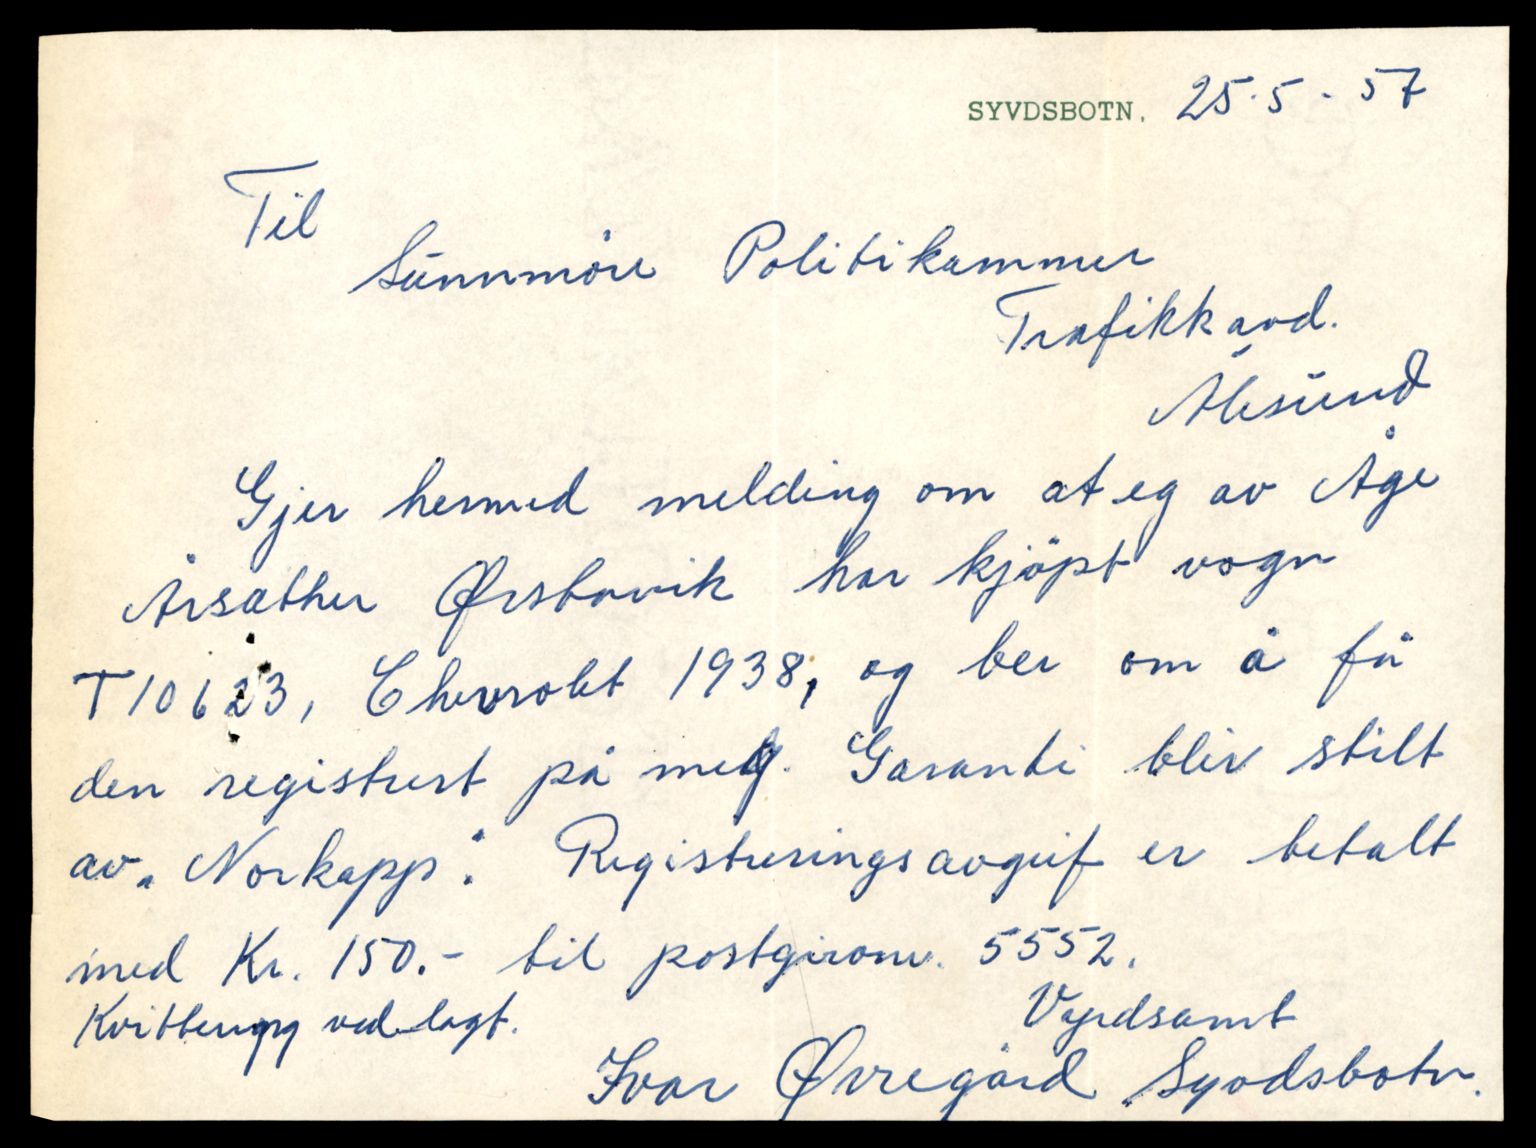 SYVDSBOTN, 25.5.-57
Til
Sunnmöre Politikammer
Trafikkavd.
Ålesund
Gjer hermed melding om at eg av Åge
Årsæther Ørstavik har kjöpt vogn
T10623, Chevrolet 1938, og ber om å få
den registrert på meg. Garanti blir stilt
av "Norkapp". Registreringsavgift er betalt
med Kr. 150.- til postgironr. 5552.
Kvittering vedlagt.
Vyrdsamt
Ivar Øvregård Syvdsbotn.